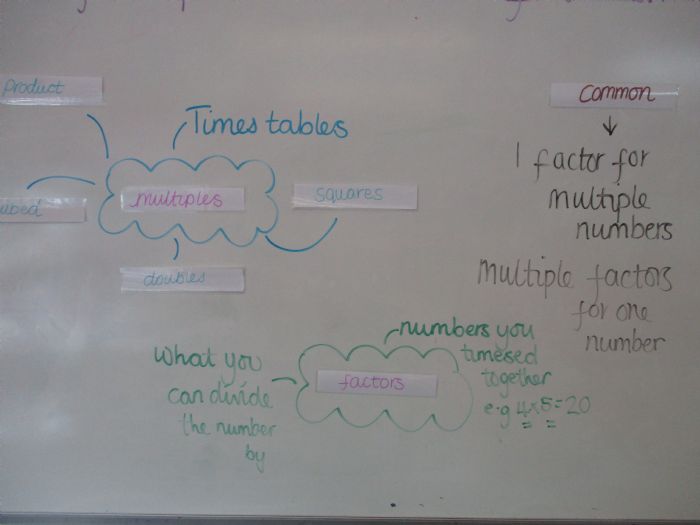 product
Times tables
multiples
squares
doubles
common
1 factor for
multiple
numbers
multiple factors
for one
number
what you
can divide
the number
by
factors
numbers you
timesed
together
e.g 4x5=20